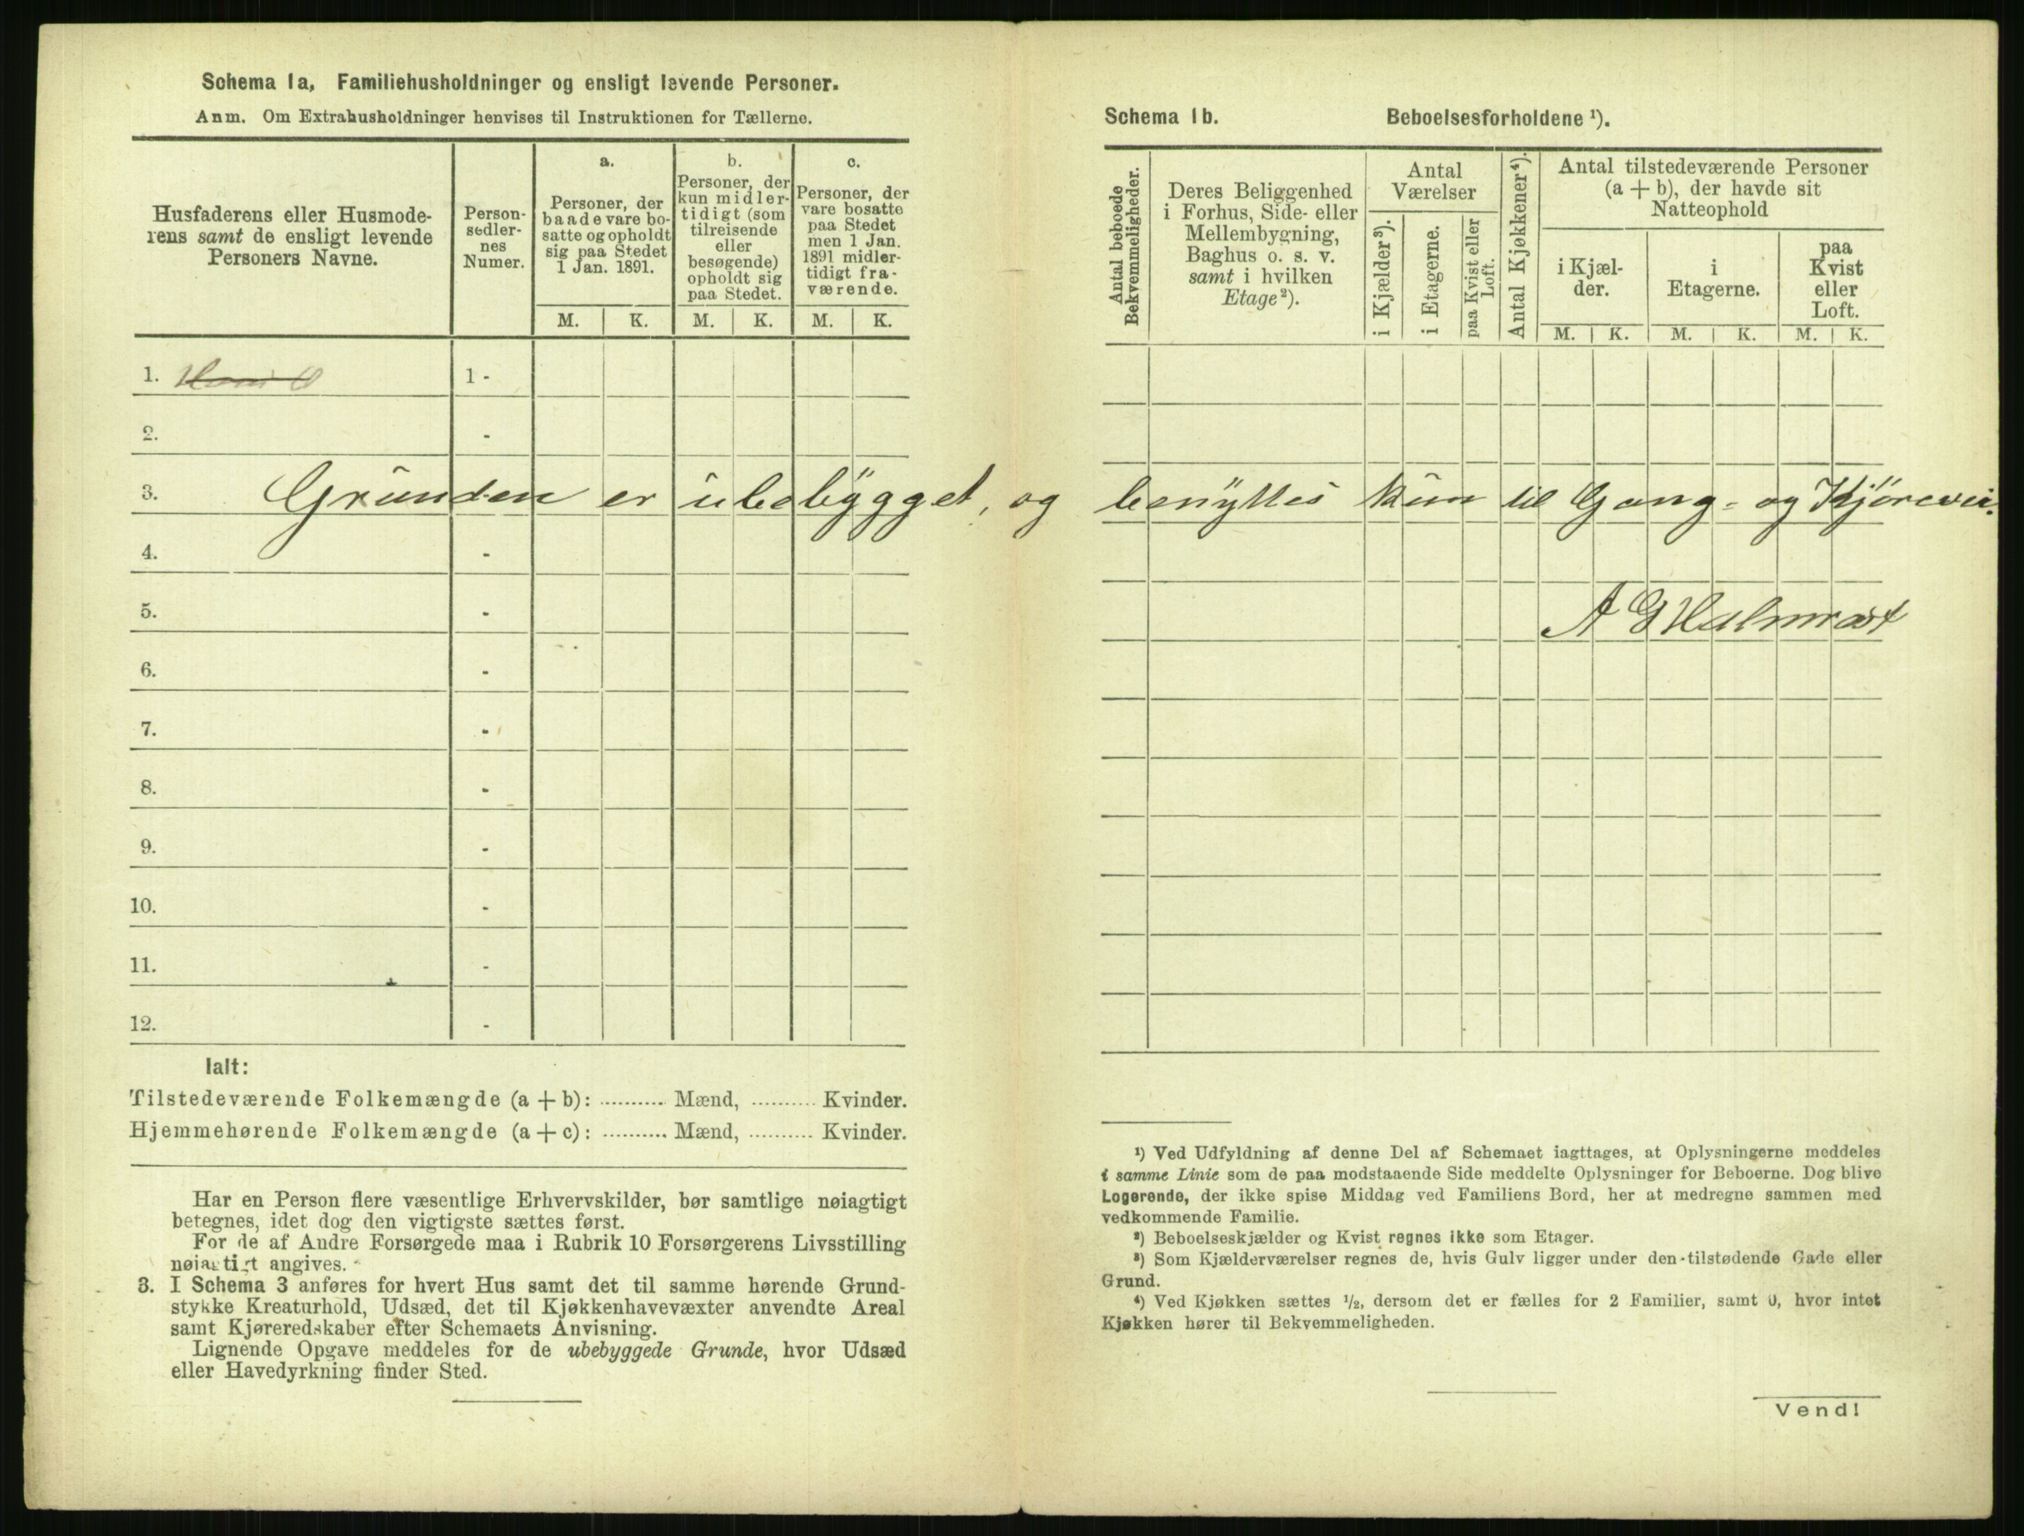 Schema 1a, Familiehusholdninger og ensligt levende Personer.
Anm. Om Extrahusholdninger henvises til Instruktionen for Tællerne.
Husfaderens eller Husmode-
rens samt de ensligt levende
Personers Navne.
Person-
sedler-
nes
Numer.
a.
Personer, der
baade vare bo-
satte og opholdt
sig paa Stedet
1 Jan. 1891.
b.
Personer, der
kun midler-
tidigt (som
tilreisende
eller
besøgende)
opholdt sig
paa Stedet.
c.
Personer, der
vare bosatte
paa Stedet
men 1 Jan.
1891 midler-
tidigt fra-
værende.
M. K. M. K. M. K.
1. 1 -
2. -
3. Grunden er ubebygget, og benyttes kun til Gang- og Kjørevei.
4. -
5. -
6. -
7. -
8. -
9. -
10. -
11. -
12. -
Ialt:
Tilstedeværende Folkemængde (a + b): .......... Mænd, .......... Kvinder.
Hjemmehørende Folkemængde (a + c): .......... Mænd, .......... Kvinder.
Har en Person flere væsentlige Erhvervskilder, bør samtlige nøiagtigt
betegnes, idet dog den vigtigste sættes først.
For de af Andre Forsørgede maa i Rubrik 10 Forsørgerens Livsstilling
nøiagtigt angives.
3. I Schema 3 anføres for hvert Hus samt det til samme hørende Grund-
stykke Kreaturhold, Udsæd, det til Kjøkkenhavevæxter anvendte Areal
samt Kjøreredskaber efter Schemaets Anvisning.
Lignende Opgave meddeles for de ubebyggede Grunde, hvor Udsæd
eller Havedyrkning finder Sted.
Schema 1b. Beboelsesforholdene ¹).
Antal beboede
Bekvemmeligheder.
Deres Beliggenhed
i Forhus, Side- eller
Mellembygning,
Baghus o. s. v.
samt i hvilken
Etage²).
Antal
Værelser
i Kjælder³).
i Etagerne.
paa Kvist eller
Loft.
Antal Kjøkkener⁴).
Antal tilstedeværende Personer
(a + b), der havde sit
Natteophold
i Kjæl-
der.
i
Etagerne.
paa
Kvist
eller
Loft.
M. K. M. K. M. K.
A G Halmrast
¹) Ved Udfyldning af denne Del af Schemaet iagttages, at Oplysningerne meddeles
i samme Linie som de paa modstaaende Side meddelte Oplysninger for Beboerne. Dog blive
Logerende, der ikke spise Middag ved Familiens Bord, her at medregne sammen med
vedkommende Familie.
²) Beboelseskjælder og Kvist regnes ikke som Etager.
³) Som Kjælderværelser regnes de, hvis Gulv ligger under den tilstødende Gade eller
Grund.
⁴) Ved Kjøkken sættes ½, dersom det er fælles for 2 Familier, samt 0, hvor intet
Kjøkken hører til Bekvemmeligheden.
Vend!